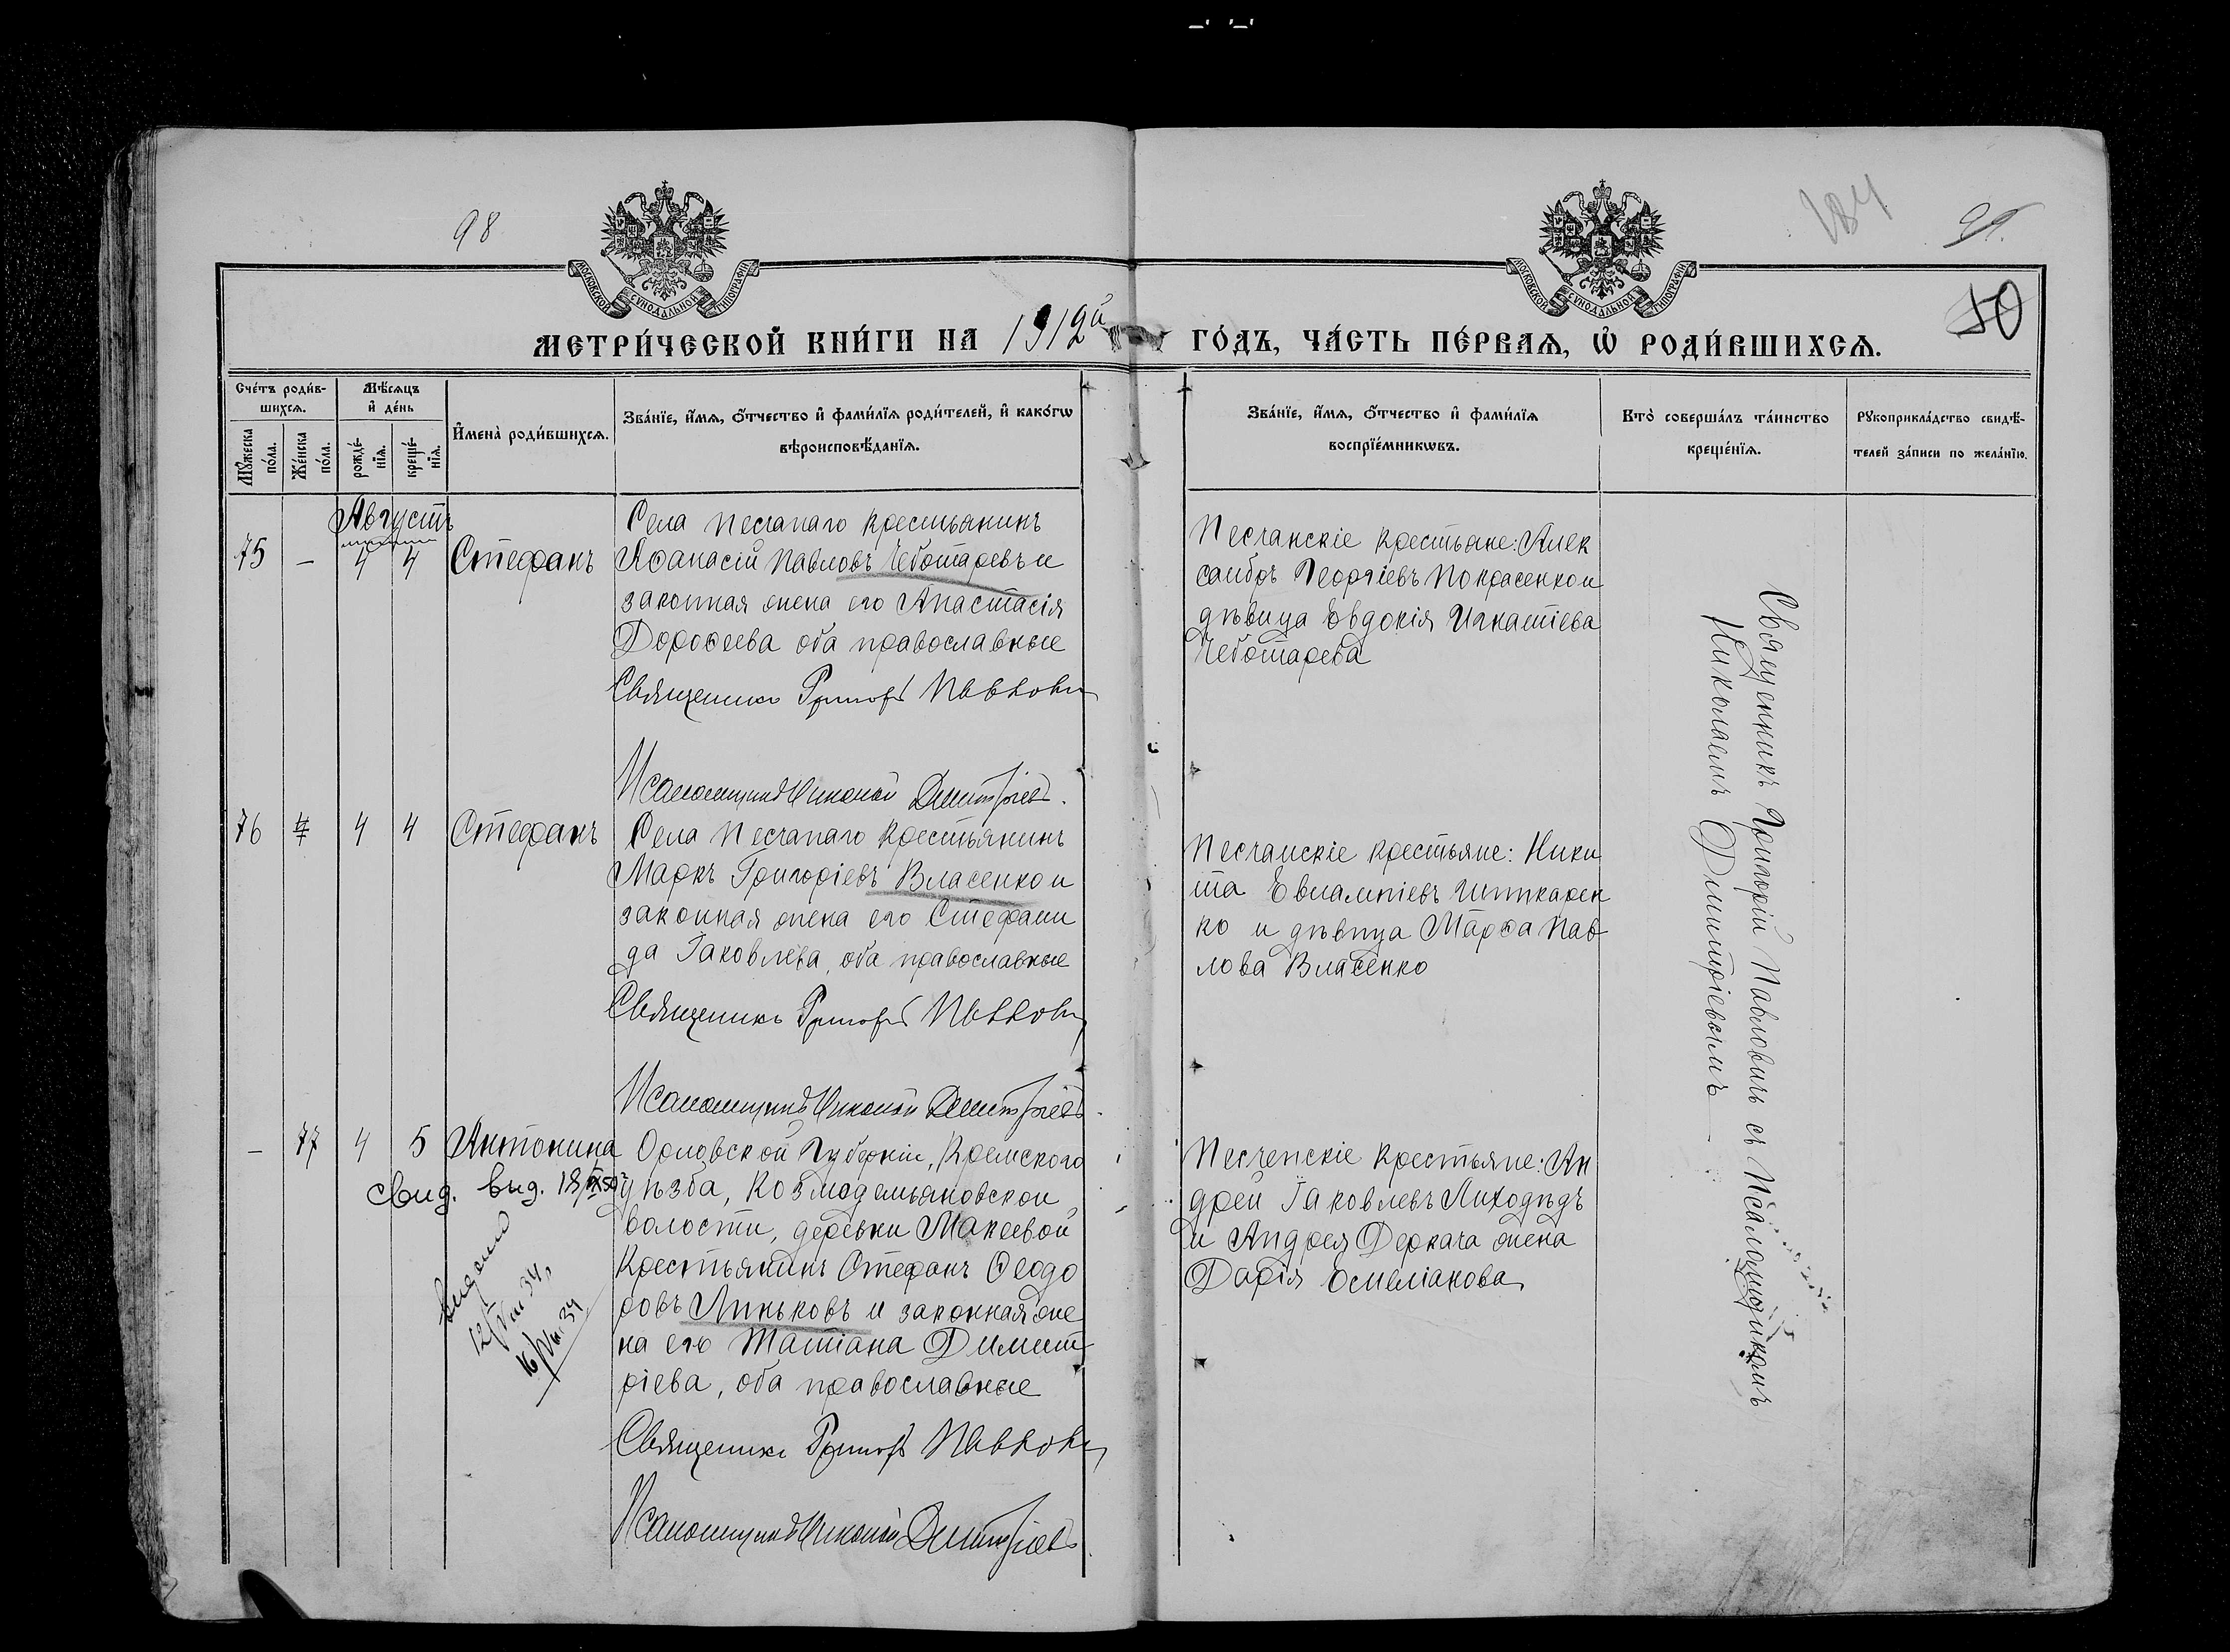 98
184
99.
50
МОСКОВСКОЙ СѴНОДАЛЬНОЙ ТИПОГРАФІИ
МОСКОВСКОЙ СѴНОДАЛЬНОЙ ТИПОГРАФІИ
МЕТРИ́ЧЕСКОЙ КНИ́ГИ НА 1912й ГО́ДЪ, ЧА́СТЬ ПЕ́РВАѦ, Ѽ РОДИ́ВШИХСѦ.
Сче́тъ роди́в-
шихсѧ.
Мѣ́сѧцъ
и҆ де́нь
Мꙋ́жеска
по́ла.
Же́нска
по́ла.
рожде́-
нїѧ.
креще́-
нїѧ.
И҆мена̀ роди́вшихсѧ.
Зва́нїе, и҆́мѧ, ѻ҆́тчество и҆ фами́лїѧ роди́телей, и҆ како́гѡ
вѣроисповѣ́данїѧ.
Зва́нїе, и҆́мѧ, ѻ҆́тчество и҆ фами́лїѧ
воспрїе́мникѡвъ.
Кто̀ соверша́лъ та́инство
креще́нїѧ.
Рꙋкоприкла́дство свидѣ́-
телей за́писи по жела́нїю.
Августъ
75 – 4 4 Стефанъ
Села Песчанаго крестьянинъ
Аѳанасій Павловъ Чеботаревъ и
законная жена его Анастасія
Дороѳеева оба православные
Священникъ Григорій Павлович
Псаломщикъ Николай Димитріевъ.
Песчанскіе крестьяне: Алек
сандръ Георгіевъ Покрасенко и
дѣвица Евдокія Игнатіева
Чеботарева
76 4 4 Стефанъ
Села Песчанаго крестьянинъ
Маркъ Григоріевъ Власенко и
законная жена его Стефани
да Іаковлева, оба православные
Священникъ Григорій Павлович
Псаломщикъ Николай Димитріевъ.
Песчанскіе крестьяне: Ники
та Евлампіевъ
ко и дѣвица Марѳа Пав
лова Власенко
– 77 4 5 Антонина
свид. выд. 18/IX 50
Выдано
12/VIII 34,
16/VIII 34
Орловской губерніи, Кромскаго
уѣзда, Козмодемьяновской
волости, деревни Макеевой
крестьянинъ Стефанъ Ѳеодо
ровъ Линьковъ и законная же
на его Татіана Димит
ріева, оба православные
Священникъ Григорій Павлович
Псаломщикъ Николай Димитріевъ
Песченскіе крестьяне: Ан
дрей Іаковлевъ Лиходѣдъ
и Андрея Деркача жена
Дарія Емеліанова
Священникъ Григорій Павловичъ съ псаломщикомъ
Николаемъ Димитріевымъ